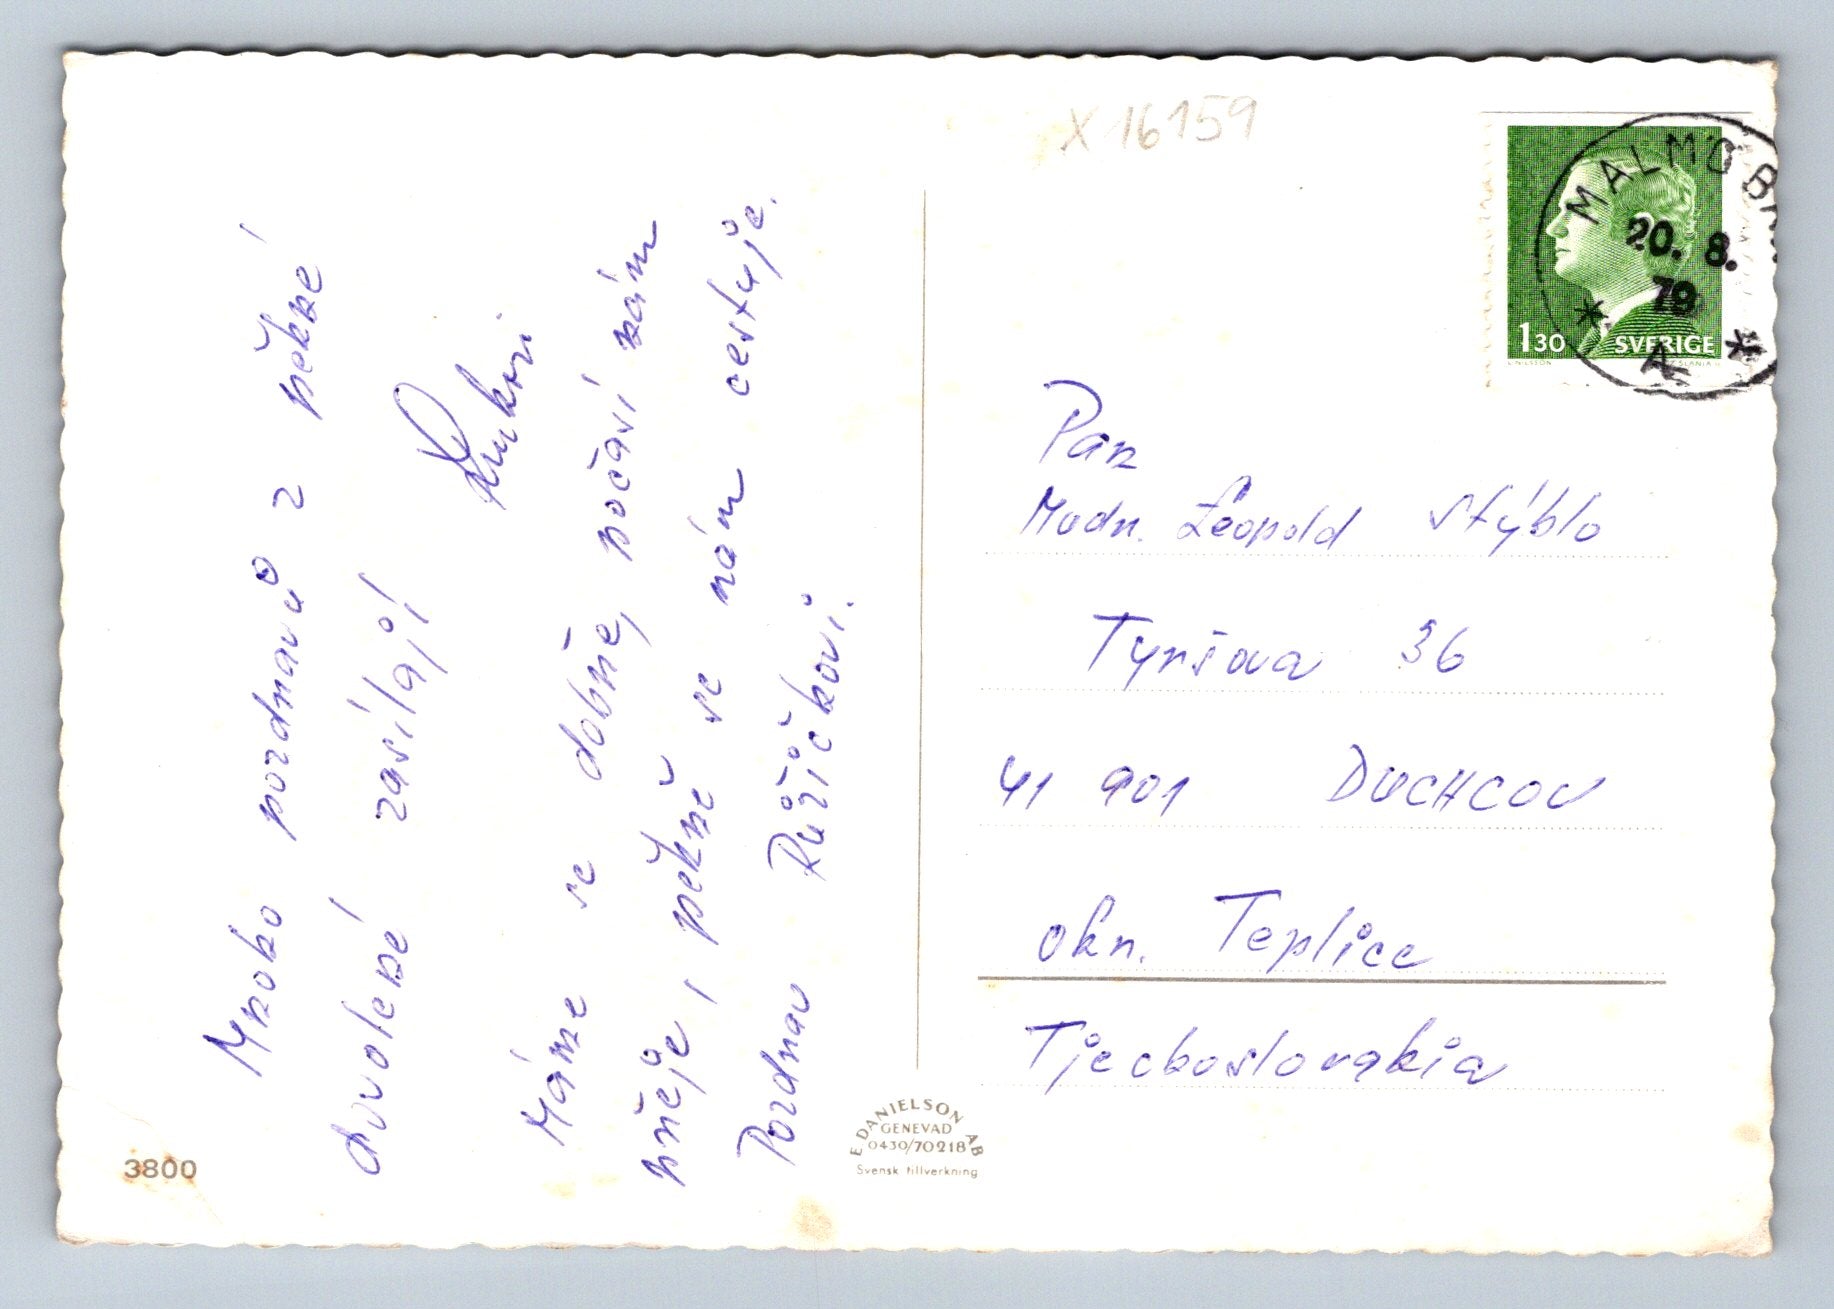 Mnoho pozdravů z pěkné
dovolené zasílají
Máme se dobře, počasí nám
přeje, i pěkně se nám cestuje.
Pozdrav Růžičkovi.
X 16159
MALMÖ BAN
20. 8.
79
* A *
1.30 SVERIGE
Pan
Mudr. Leopold Stýblo
Tyršova 36
41 901 DUCHCOV
okr. Teplice
Tjeckoslovakia
3800
E. DANIELSON AB
GENEVAD
0430/70218
Svensk tillverkning